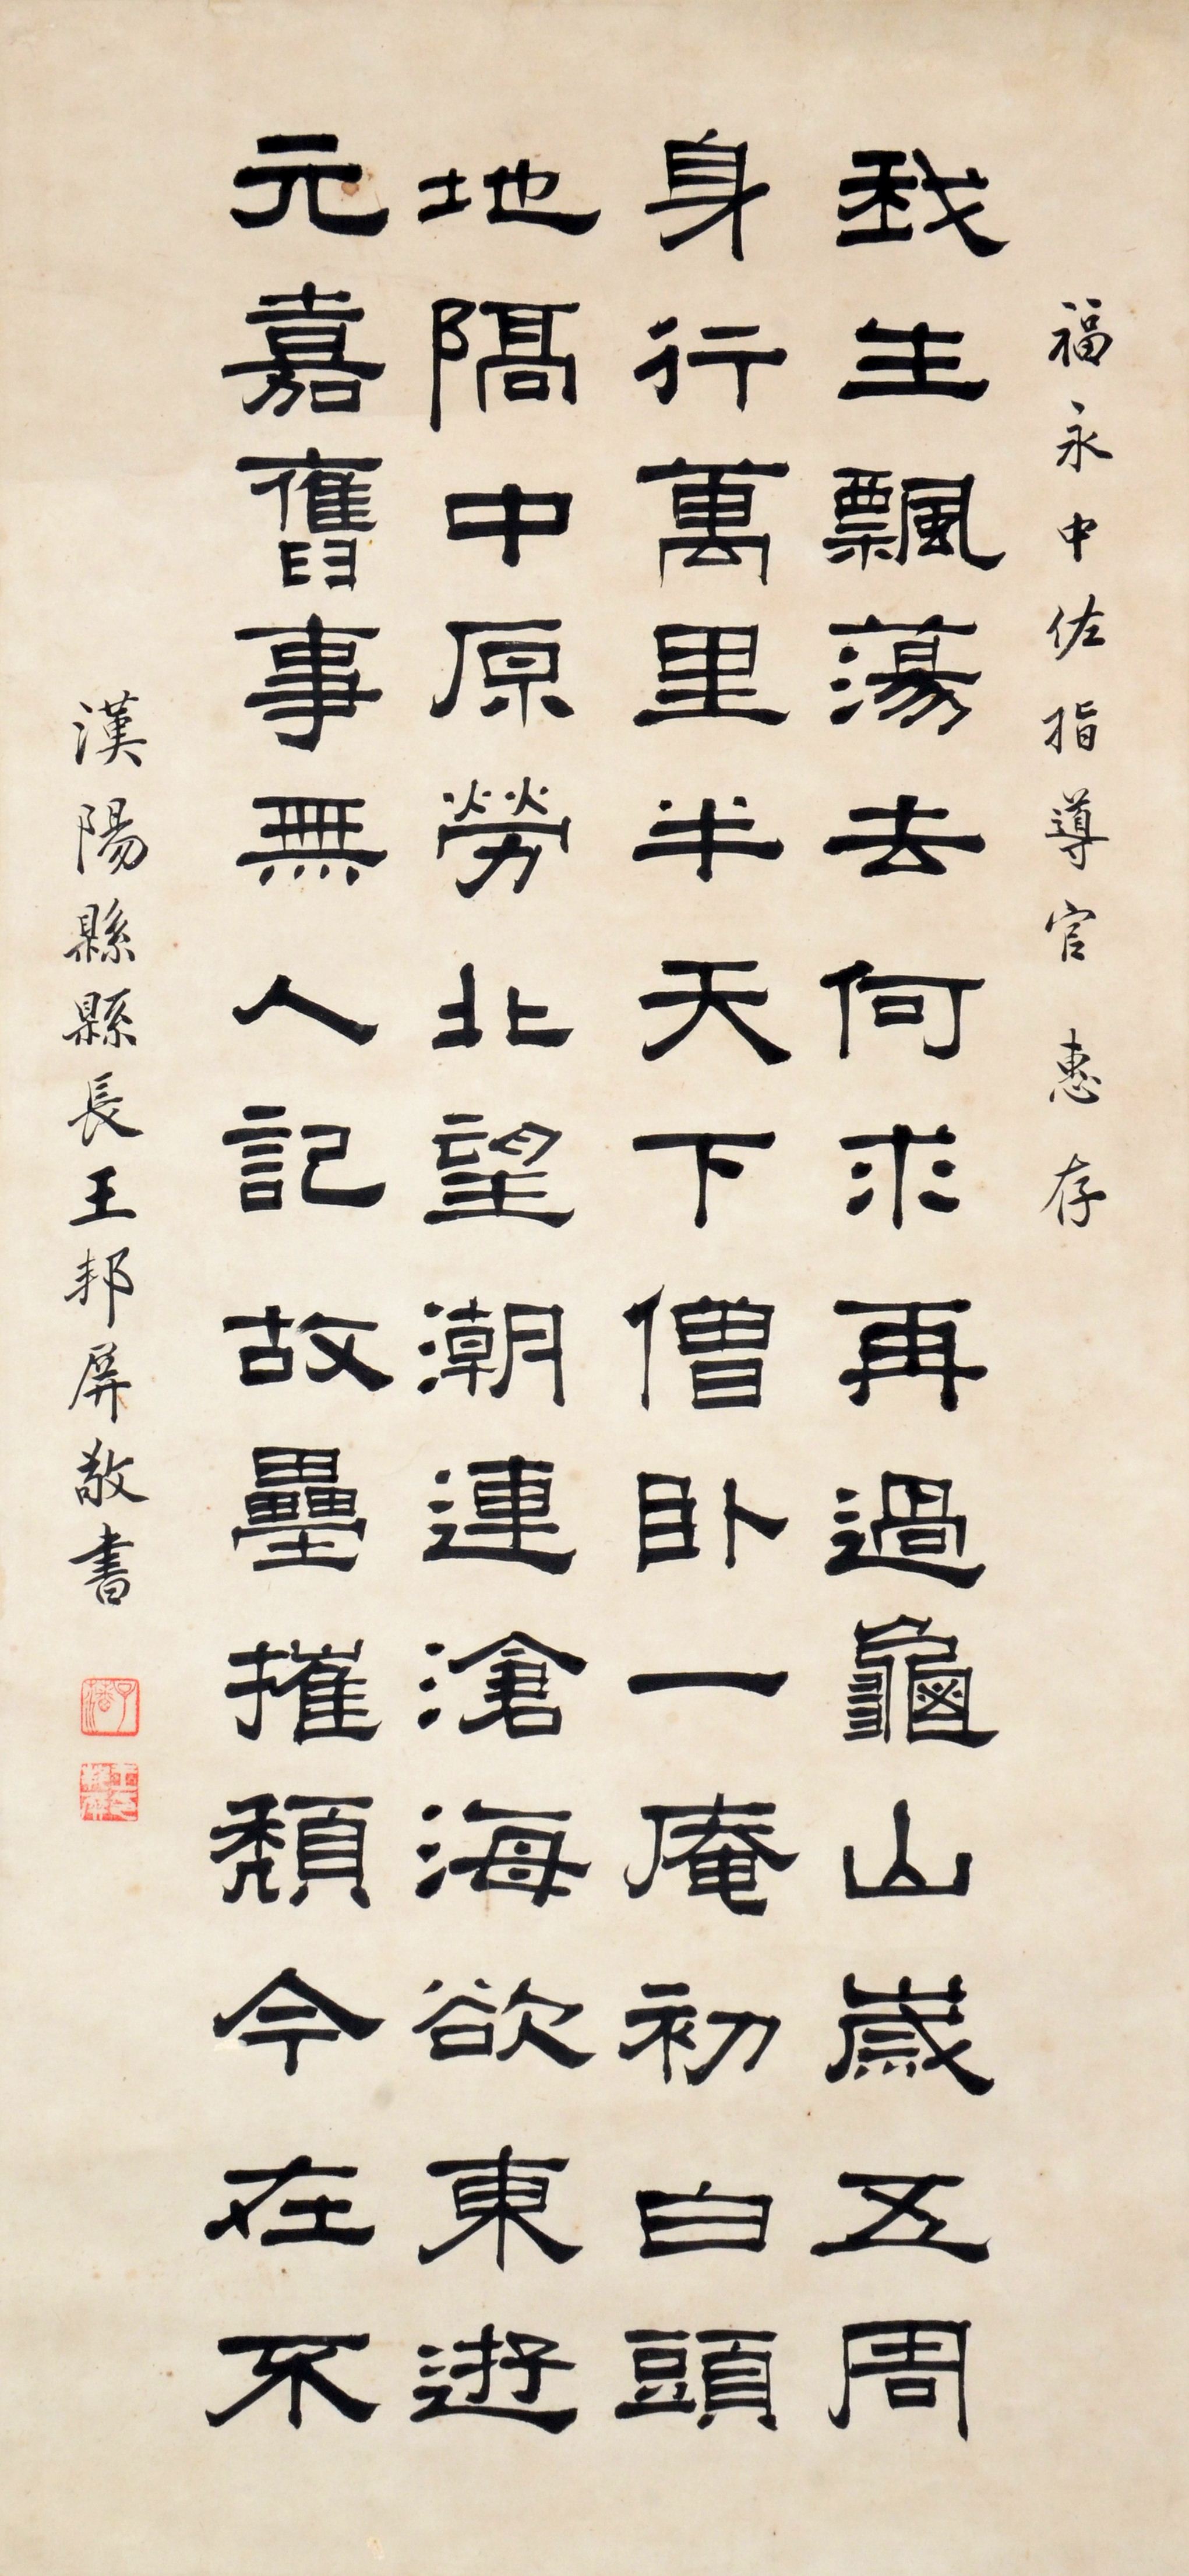 福永中佐指導官 惠存
我生飄蕩去何求再過龜山歲五周
身行萬里半天下僧卧一庵初白頭
地隔中原勞北望潮連滄海欲東遊
元嘉舊事無人記故壘摧頹今在不
漢陽縣縣長王邦屏敬書